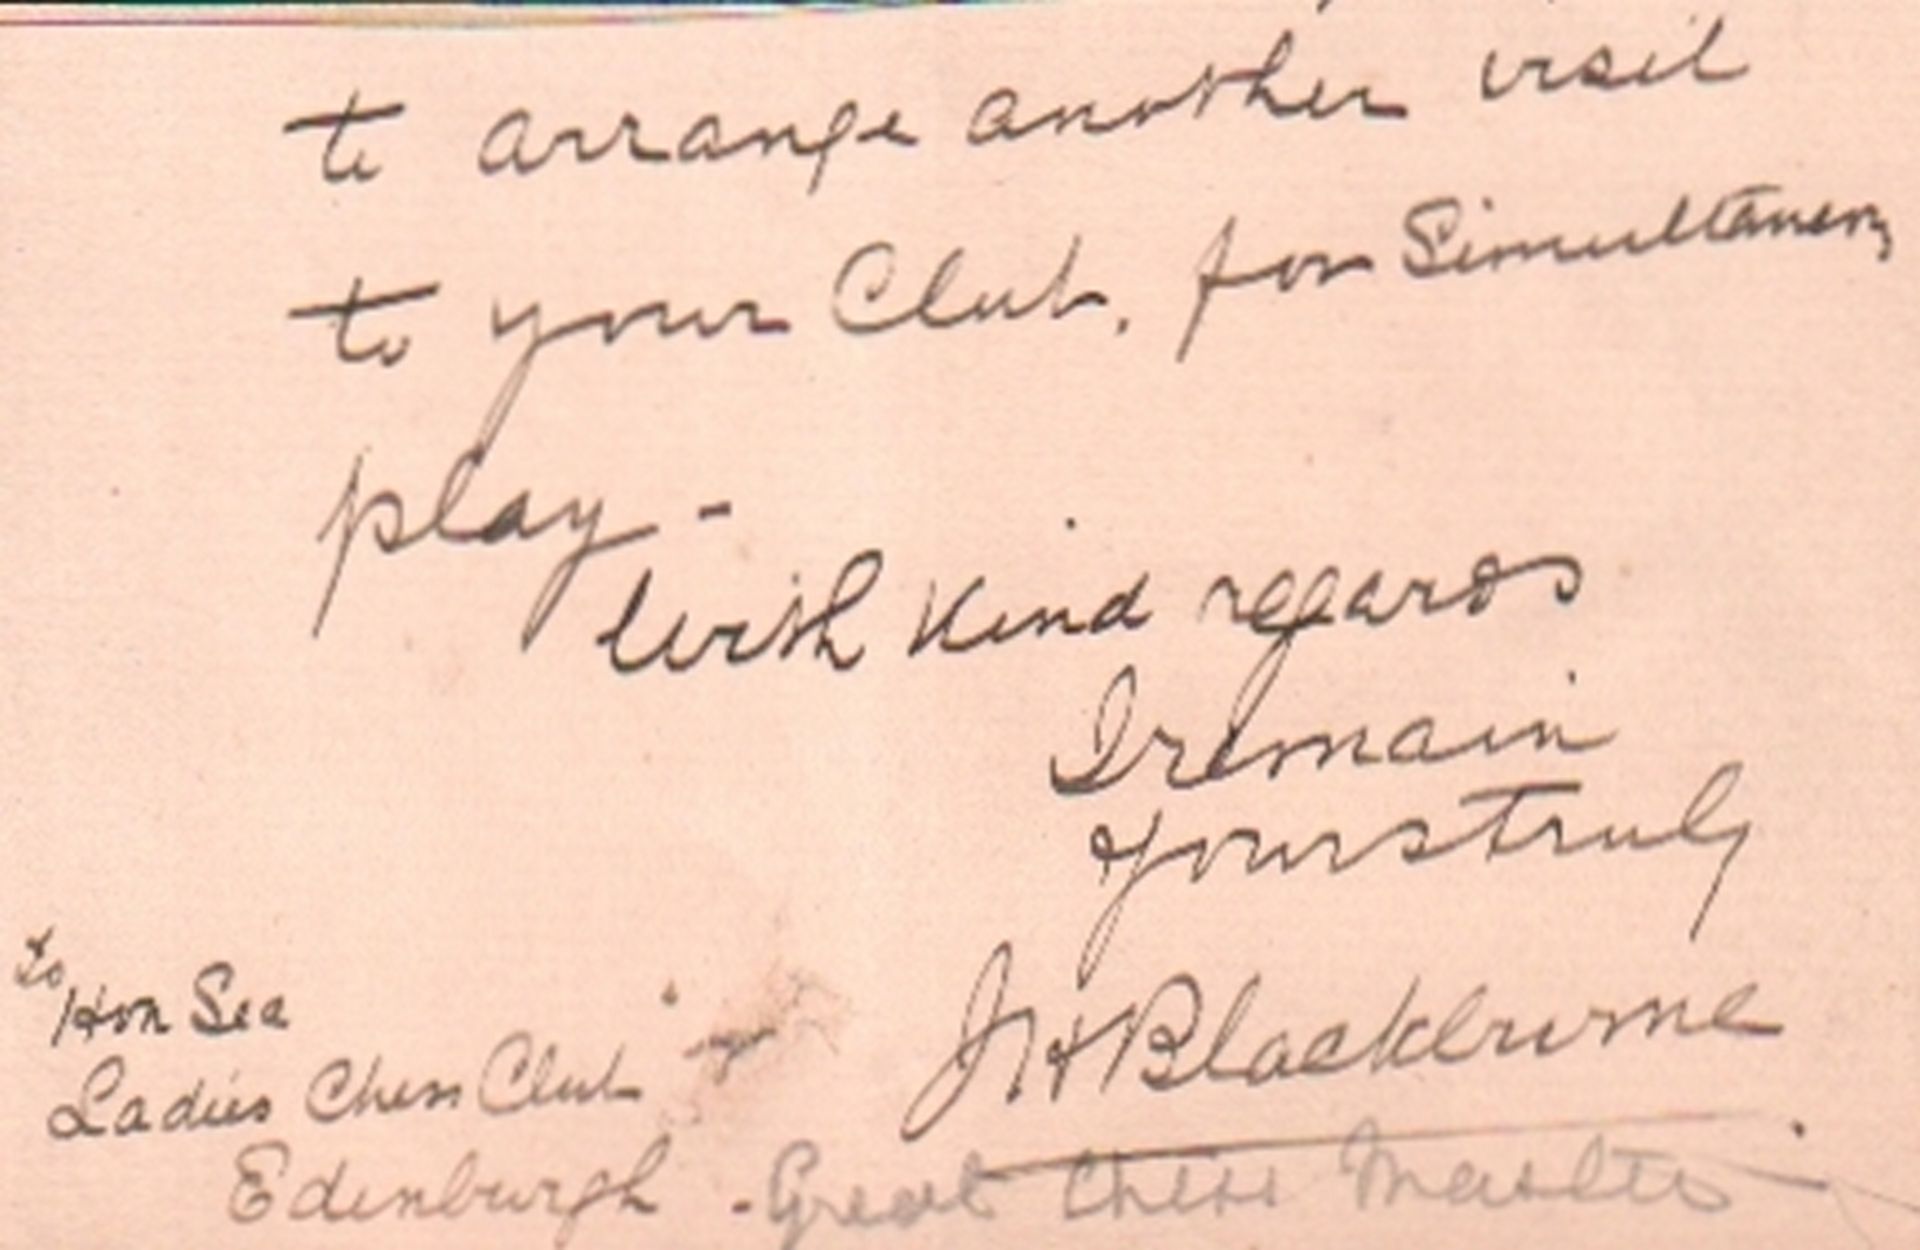 to arrange another visit
to your Club, for Simultaneous
play -
With Kind regards
I remain
Yours truly
J H Blackburne
To
Hon Sec
Ladies Chess Club
Edinburgh - Great Chess Master